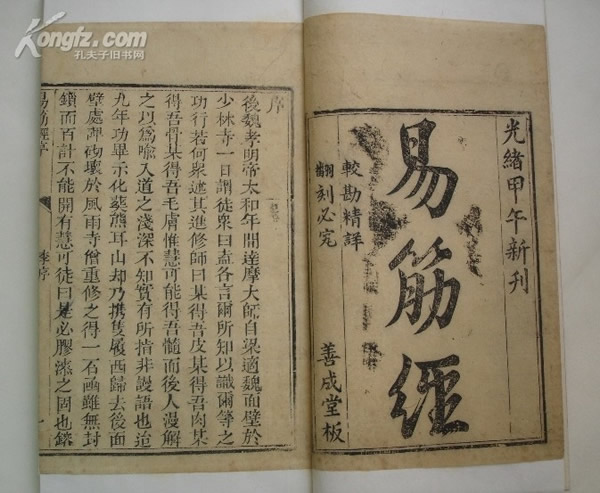 Kongfz.com
孔夫子旧书网
光緒甲午新刊
易筋經
較勘精詳
翻刻必究
善成堂板
序
後魏孝明帝太和年間達摩大師自梁適魏面壁於
少林寺一日謂徒衆曰盍各言爾所知以識爾等之
功行若何衆述其進修師曰某得吾皮某得吾肉某
得吾骨某得吾毛膚惟慧可能得吾髓而後人漫解
之以爲喻入道之淺深不知實有所指非謾語也迨
九年功畢示化葬熊耳山却乃攜隻履西歸去後面
壁處碑砌壞於風雨寺僧重修之得一石函雖無封
鎖而百計不能開有慧可徒曰是必膠漆之固也鎔
易筋經序 李序 一